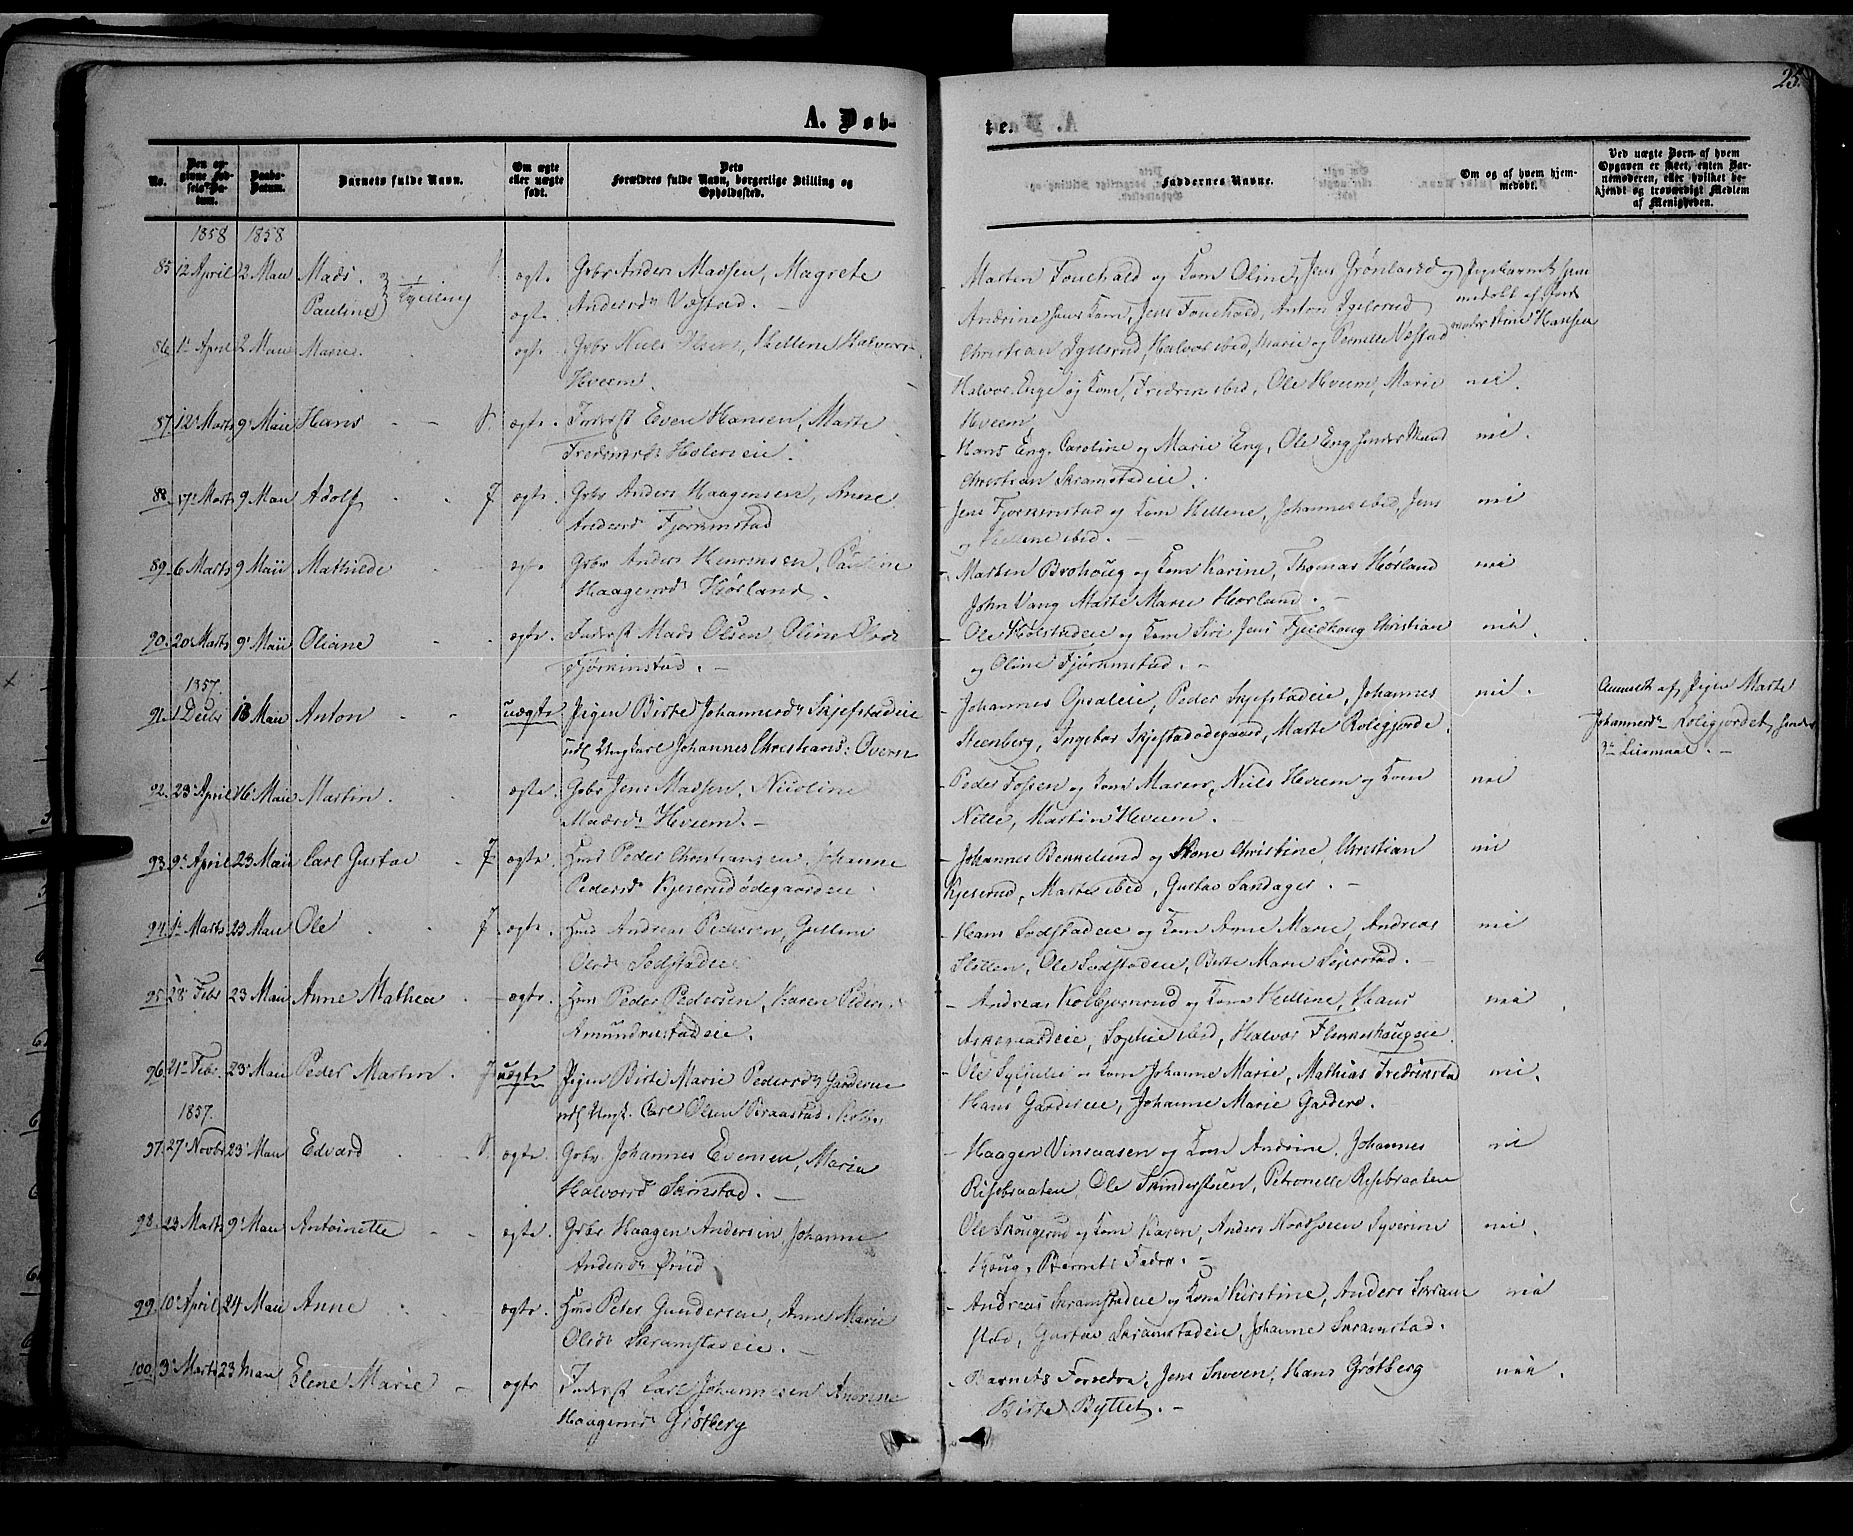 25.
A. Døb-
te.
No.
Den opgivne Fødsels-Datum.
Daabs-Datum.
Barnets fulde Navn.
Om ægte eller uægte født.
Dets Forældres fulde Navn, borgerlige Stilling og Opholdssted.
Faddernes Navne.
Om og af hvem hjemmedøbt.
Ved uægte Børn af hvem Opgaven er skeet, enten Barnemoderen, eller hvilket bekjendt og troværdigt Medlem af Menigheden.
1858 1858
85 12 April 2 Maii Mads. } Tvilling ægte Gbr Anders Madsen, Magrete
Pauline ægte Andersdr Væstad. —
Marten Fouchald og Kone Oline, Jens Grønland og
Andrine hans Kone, Jens Fouchald, Anton Igelsrud
Christian Igelsrud, Halvor ibid, Marie og Pernelle Væstad
86 1 April 2 Maii Marie. ægte Gbr Niels Olsen, Hellene Halvorsd
Hveem.
Halvor Enge og Kone, Fredrin ibid, Ole Hveem, Marie nei.
Hveem
87 12 Marts 9 Maii Hans ægte. Inderst Even Hansen, Marte
Fredriksd Holenseie.
Hans Eng, Caroline og Marie Eng, Ole Eng nei.
Christian Skramstadeie.
88 17 Marts 9 Maii Adolf ægte. Gbr Anders Haagensen, Anne
Andersd Fjørkenstad
Jens Fjørkenstad og Kone Hellene, Johannes ibid, Jens nei
og Hellene ibid. —
89 6 Marts 9 Maii Mathilde ægte Gbr Anders Henrensen, Pauline
Haagensd Hørland.
Marten Brohoug og Kone Karine, Thomas Hørland nei
John Vang Marte Marie Hørland. —
90. 20 Marts 9 Maii Oliane ægte. Inderst Mads Olsen Oline Olsd
Fjørkinstad. —
Ole Holstadeie og Kone Siri Jens Fjeldhoug Christian nei.
og Oline Fjørkenstad. —
1857.
91. 1 Decbr 16 Maii Anton uægte Pigen Birte Johannesdr Skjefstadeie
udl Ungkarl Johannes Christians: Overn
Johannes Opsaleie, Peder Skjefstadeie, Johannes nei.
Steenberg, Ingebor Skjefstadødegaard, Marte Roligjorde.
Anmeldt af Pigen Marte
Johannesdr Roligjordet,
Leiermaal. —
92. 23 April 16 Maii Martin. ægte. Gbr Jens Madsen, Nicoline
Madsdr Hveem. —
Peder Fossen og Kone Maren, Niels Hveem og Kone nei
Nette, Martin Hveem.
93. 9 April 23 Maii Carl Gustav ægte. Hmd Peder Christiansen, Johanne
Pedersdr Kjeserudødegaardeie.
Johannes Bennelund og Kone Christine, Christian nei
Kjeserud, Marte ibid, Gustav Sandager. —
94. 1 Marts 23 Maii Ole ægte. Hmd Andreas Pedersen, Gullene
Olsdr Sodstadeie
Hans Sodstadeie og Kone Anne Marie, Andreas nei
Slotten, Ole Sodstadeie, Birte Marie Seierstad. —
95 28 Febr 23 Maii Anne Mathea ægte. Hmd Peder Pedersen, Karen Peders
Amundrudstadeie.
Andreas Kolbjørnrud og Kone Hellene, Hans nei
Askegaardeie, Sophie ibid, Halvor Flenneshougeie.
96 21 Febr. 23 Maii Peder Marten. uægte Pigen Birte Marie Pedersdr Garderne
udl Ungk. Carl Olsen Braastad
Ole og Kone Johanne Marie, Mathias Fredrinstad nei.
Hans Garderne, Johanne Marie Gardere.
1857.
97. 27 Novbr 23 Maii Edvard ægte. Gbr. Johannes Evensen, Maria
Halvorsd Skinstad. —
Haagen Vinsaasen og Kone Andrine, Johannes nei
Risebraaten, Ole Skinderstuen, Petronelle Risebraaten
98. 23 Marts 9 Maii Antoinette ægte. Gbr. Haagen Andersen, Johanne
Andersdr Ørud
Ole Skougerud og Kone Karen, Anders Nordsveen Syverine nei.
Houg, Barnets Fader. —
99. 10 April 24 Maii Anne ægte. Hmd Peter Gundersen, Anne Marie
Olsdr Skramstadeie. —
Andreas Skramstadeie og Kone Kirstine, Anders Skram nei
stad, Gustav Skramstadeie, Johanne Skramstad.
100. 3 Marts 23 Maii Elene Marie ægte Inderst Carl Johannesen Andrine
Haagensd Grøtberg
Barnets Forældre, Jens Sveen, Hans Grøtberg nei.
Birte Byttet. —